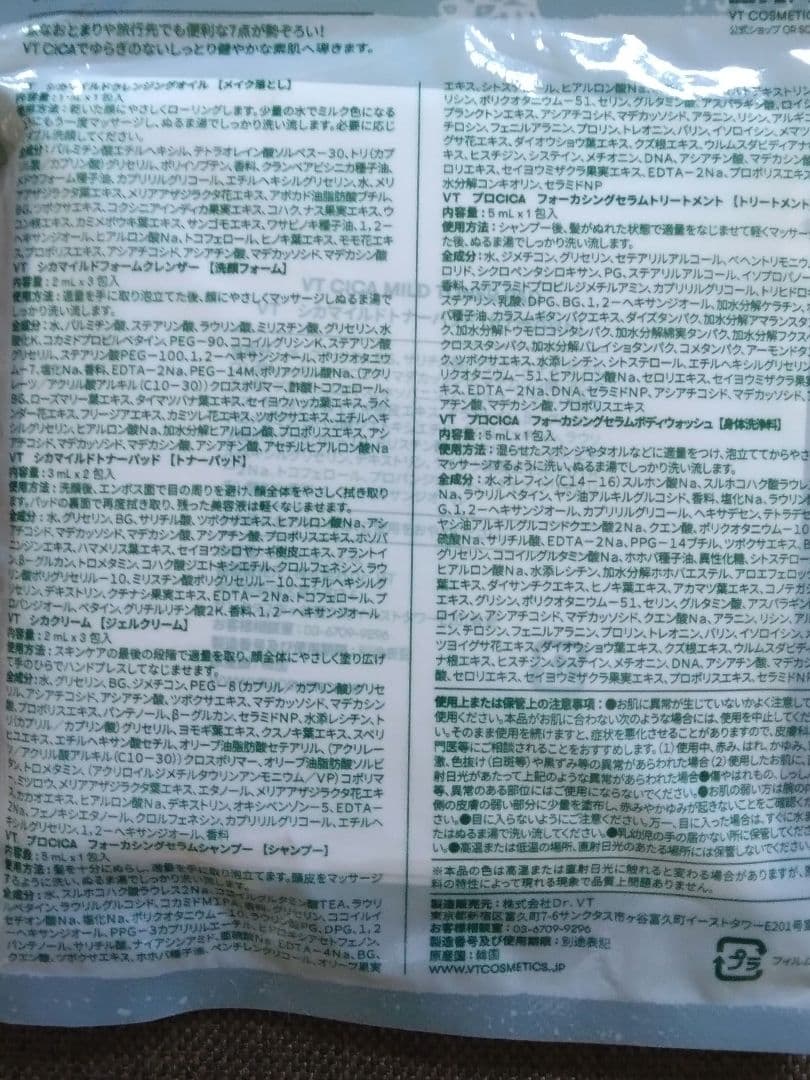 なおとまりや旅行先でも便利な7点が勢ぞろい!
VT CICAでゆらぎのないしっとり健やかな素肌へ導きます。
VT シカマイルドクレンジングオイル【メイク落とし】
乾いた顔にやさしくローリングします。少量の水でミルク色になる
もう一度マッサージし、ぬるま湯でしっかり洗い流します。必要に応じ
洗顔してください。
パルミチン酸エチルヘキシル、テトラオレイン酸ソルベス-30、トリ(カプ
カプリン酸)グリセリル、ポリイソブテン、香料、クランベアビシニカ種子油、
メドウフォーム種子油、カプリリルグリコール、エチルヘキシルグリセリン、水、メリ
アアザジラクタ葉エキス、メリアアザジラクタ花エキス、アボカド油脂肪酸ブチル、
BG、ツボクサエキス、コクシニアインディカ果実エキス、コハクナス果実エキス、ウ
コン根エキス、カミメボウキ葉エキス、サンゴモエキス、ワサビノキ種子油、1,2-
ヘキサンジオール、ヒアルロン酸Na、トコフェロール、ヒノキ葉エキス、モモ花エキ
ス、プロポリスエキス、アシアチコシド、アシアチン酸、マデカッソシド、マデカシン酸
VT シカマイルドフォームクレンザー【洗顔フォーム】
内容量:2mL×3包入
使用方法:適量を手に取り泡立てた後、顔にやさしくマッサージしぬるま湯で
しっかり洗い流します。
全成分:水、パルミチン酸、ステアリン酸、ラウリン酸、ミリスチン酸、グリセリン、水
酸化K、コカミドプロピルベタイン、PEG-90、ココイルグリシンK、ステアリン酸
グリセリル、ステアリン酸PEG-100、1,2-ヘキサンジオール、ポリクオタニウ
ム-7、塩化Na、香料、EDTA-2Na、PEG-14M、ポリアクリル酸Na、(アクリ
レーツ/アクリル酸アルキル(C10-30))クロスポリマー、酢酸トコフェロール、
BG、ローズマリー葉エキス、タイマツバナ葉エキス、セイヨウハッカ葉エキス、ラベ
ンダー花エキス、フリージアエキス、カミツレ花エキス、ツボクサエキス、エチルヘキ
シルグリセリン、ヒアルロン酸Na、加水分解ヒアルロン酸、プロポリスエキス、アシ
アチコシド、マデカッソシド、マデカシン酸、アシアチン酸、アセチルヒアルロン酸Na
VT シカマイルドトナーパッド【トナーパッド】
内容量:3mL×2包入
使用方法:洗顔後、エンボス面で目の周りを避け、顔全体をやさしく拭き取り
ます。パッドの裏面で再度拭き取り、残った美容液は軽くなじませます。
全成分:水、グリセリン、BG、サリチル酸、ツボクサエキス、ヒアルロン酸Na、アシ
アチコシド、マデカッソシド、マデカシン酸、アシアチン酸、プロポリスエキス、ホソバ
ニンジンエキス、ハマメリス葉エキス、セイヨウシロヤナギ樹皮エキス、アラントイ
ン、β-グルカン、トロメタミン、コハク酸ジエトキシエチル、クロルフェネシン、ラウリ
ン酸ポリグリセリル-10、ミリスチン酸ポリグリセリル-10、エチルヘキシルグリ
セリン、デキストリン、クチナシ果実エキス、EDTA-2Na、トコフェロール、プ
ロパンジオール、ベタイン、グリチルリチン酸2K、香料、1,2-ヘキサンジオール
VT シカクリーム【ジェルクリーム】
内容量:2mL×3包入
使用方法:スキンケアの最後の段階で適量を取り、顔全体にやさしく塗り広げ
て手のひらでハンドプレスしてなじませます。
全成分:水、グリセリン、BG、ジメチコン、PEG-8(カプリル/カプリン酸)グリセ
リル、アシアチコシド、アシアチン酸、ツボクサエキス、マデカッソシド、マデカシン
酸、プロポリスエキス、パンテノール、β-グルカン、セラミドNP、水添レシチン、ト
リ(カプリル/カプリン酸)グリセリル、ヨモギ葉エキス、クスノキ葉エキス、スベリ
ヒユエキス、エチルヘキサン酸セチル、オリーブ油脂肪酸セテアリル、(アクリレー
ツ/アクリル酸アルキル(C10-30))クロスポリマー、オリーブ油脂肪酸ソルビ
タン、トロメタミン、(アクリロイルジメチルタウリンアンモニウム/VP)コポリマ
ー、ミツロウ、メリアアザジラクタ葉エキス、エタノール、メリアアザジラクタ花エキ
ス、カカオエキス、ヒアルロン酸Na、デキストリン、オキシベンゾン-5、EDTA-
2Na、フェノキシエタノール、クロルフェネシン、カプリリルグリコール、エチルヘ
キシルグリセリン、1,2-ヘキサンジオール、香料
VT プロCICA フォーカシングセラムシャンプー【シャンプー】
内容量:5mL×1包入
使用方法:髪を十分にぬらし、適量を手に取り泡立てます。頭皮をマッサージ
するように洗い、ぬるま湯でしっかり洗い流します。
全成分:水、スルホコハク酸ラウレス2Na、ココイルグルタミン酸TEA、ラウリ
ルベタイン、ラウリルグルコシド、コカミドMIPA、
セチオン酸Na、塩化Na、ポリクオタニウム-10、
-ヘキサンジオール、PPG-3カプリリルエーテル、
パンテノール、サリチル酸、ナイアシンアミド、亜硫酸Na、EDTA-4Na、BG、
クエン酸、ツボクサエキス、ホホバ種子油、ペンチレングリコール、オリーブ果実
VT COSMETICS
公式ショップ OR
エキス、シトステロール、ヒアルロン酸Na、
リシン、ポリクオタニウム-51、セリン、グルタミン酸、アスパラギン酸、ロイ
プランクトンエキス、アシアチコシド、マデカッソシド、アラニン、リシン、アルギ
チロシン、フェニルアラニン、プロリン、トレオニン、バリン、イソロイシン、メマ
グサ花エキス、ダイオウショウ葉エキス、クズ根エキス、ウルムスダビディアナ
エキス、ヒスチジン、システイン、メチオニン、DNA、アシアチン酸、マデカシン
ロリエキス、セイヨウミザクラ果実エキス、EDTA-2Na、プロポリスエキス
水分解コンキオリン、セラミドNP
VT プロCICA フォーカシングセラムトリートメント【トリートメント】
内容量:5mL×1包入
使用方法:シャンプー後、髪がぬれた状態で適量をなじませて軽くマッサー
た後、ぬるま湯でしっかり洗い流します。
全成分:水、ジメチコン、グリセリン、セテアリルアルコール、ベヘントリモニウ
ロリド、シクロペンタシロキサン、PG、ステアリルアルコール、イソプロパノー
香料、ステアラミドプロピルジメチルアミン、カプリリルグリコール、トリヒドロ
ステアリン、乳酸、DPG、BG、1,2-ヘキサンジオール、加水分解ケラチン、
バ種子油、カラスムギタンパクエキス、ダイズタンパク、加水分解アマランスタ
ク、加水分解トウモロコシタンパク、加水分解綿実タンパク、加水分解フクス
クロススタンパク、加水分解バレイショタンパク、コメタンパク、アーモンドタ
ク、ツボクサエキス、水添レシチン、シトステロール、エチルヘキシルグリセリ
リクオタニウム-51、ヒアルロン酸Na、セロリエキス、セイヨウミザクラ果
キス、EDTA-2Na、DNA、セラミドNP、アシアチコシド、マデカッソシド、ア
アチン酸、マデカシン酸、プロポリスエキス
VT プロCICA フォーカシングセラムボディウォッシュ【身体洗浄料】
内容量:5mL×1包入
使用方法:湿らせたスポンジやタオルなどに適量をつけ、泡立ててからやさ
マッサージするように洗い、ぬるま湯でしっかり洗い流します。
全成分:水、オレフィン(C14-16)スルホン酸Na、スルホコハク酸ラウレ
Na、ラウリルベタイン、ヤシ油アルキルグルコシド、香料、塩化Na、ラウリ
G、1,2-ヘキサンジオール、カプリリルグリコール、ヘキサデセン、テトラデセ
ヤシ油アルキルグルコシドクエン酸2Na、クエン酸、ポリクオタニウム-10
硫酸Na、サリチル酸、EDTA-2Na、PPG-14ブチル、ツボクサエキス、B
グリセリン、ココイルグルタミン酸Na、ホホバ種子油、異性化糖、シトステロー
ヒアルロン酸Na、水添レシチン、加水分解ホホバエステル、アロエフェロッ
葉エキス、ダイサンチクエキス、ヒノキ葉エキス、アカマツ葉エキス、コノテガ
エキス、グリシン、ポリクオタニウム-51、セリン、グルタミン酸、アスパラギン
ロイシン、アシアチコシド、マデカッソシド、クエン酸Na、アラニン、リシン、ア
ニン、チロシン、フェニルアラニン、プロリン、トレオニン、バリン、イソロイシン、
ツヨイグサ花エキス、ダイオウショウ葉エキス、クズ根エキス、ウルムスダビ
ナ根エキス、ヒスチジン、システイン、メチオニン、DNA、アシアチン酸、マデカ
酸、セロリエキス、セイヨウミザクラ果実エキス、プロポリスエキス、セラミドN
使用上または保管上の注意事項:●お肌に異常が生じていないかよく注意して
使用ください。本品がお肌に合わない次のような場合には、使用を中止してく
い。そのまま使用を続けますと、症状を悪化させることがありますので、皮膚科
門医等にご相談されることをおすすめします。(1)使用中、赤み、はれ、かゆみ、
激、色抜け(白斑等)や黒ずみ等の異常があらわれた場合(2)使用したお肌に、
射日光があたって上記のような異常があらわれた場合●傷やはれもの、しっし
等、異常のある部位にはご使用にならないでください。●お肌の弱い方は腕の
側の皮膚の弱い部分に少量を塗布し、赤みやかゆみが起きないことをご確認く
い。●目に入らないようにご注意ください。万一、目に入った場合は、すぐに水ま
たはぬるま湯で洗い流してください。●乳幼児の手の届かない所に保管してくだ
い。●高温または低温の場所、直射日光のあたる場所には保管しないでください。
※本品の色は高温または直射日光に触れると変わる場合がありますが、原
料の特性によって現れる現象で品質上問題ありません。
製造販売元:株式会社Dr.VT
東京都新宿区富久町7-6サンクタス市ヶ谷富久町イーストタワーE201号室
お客様相談室:03-6709-9296
製造番号及び使用期限:別途表記
原産国:韓国
WWW.VTCOSMETICS.JP
プラ
フィルム